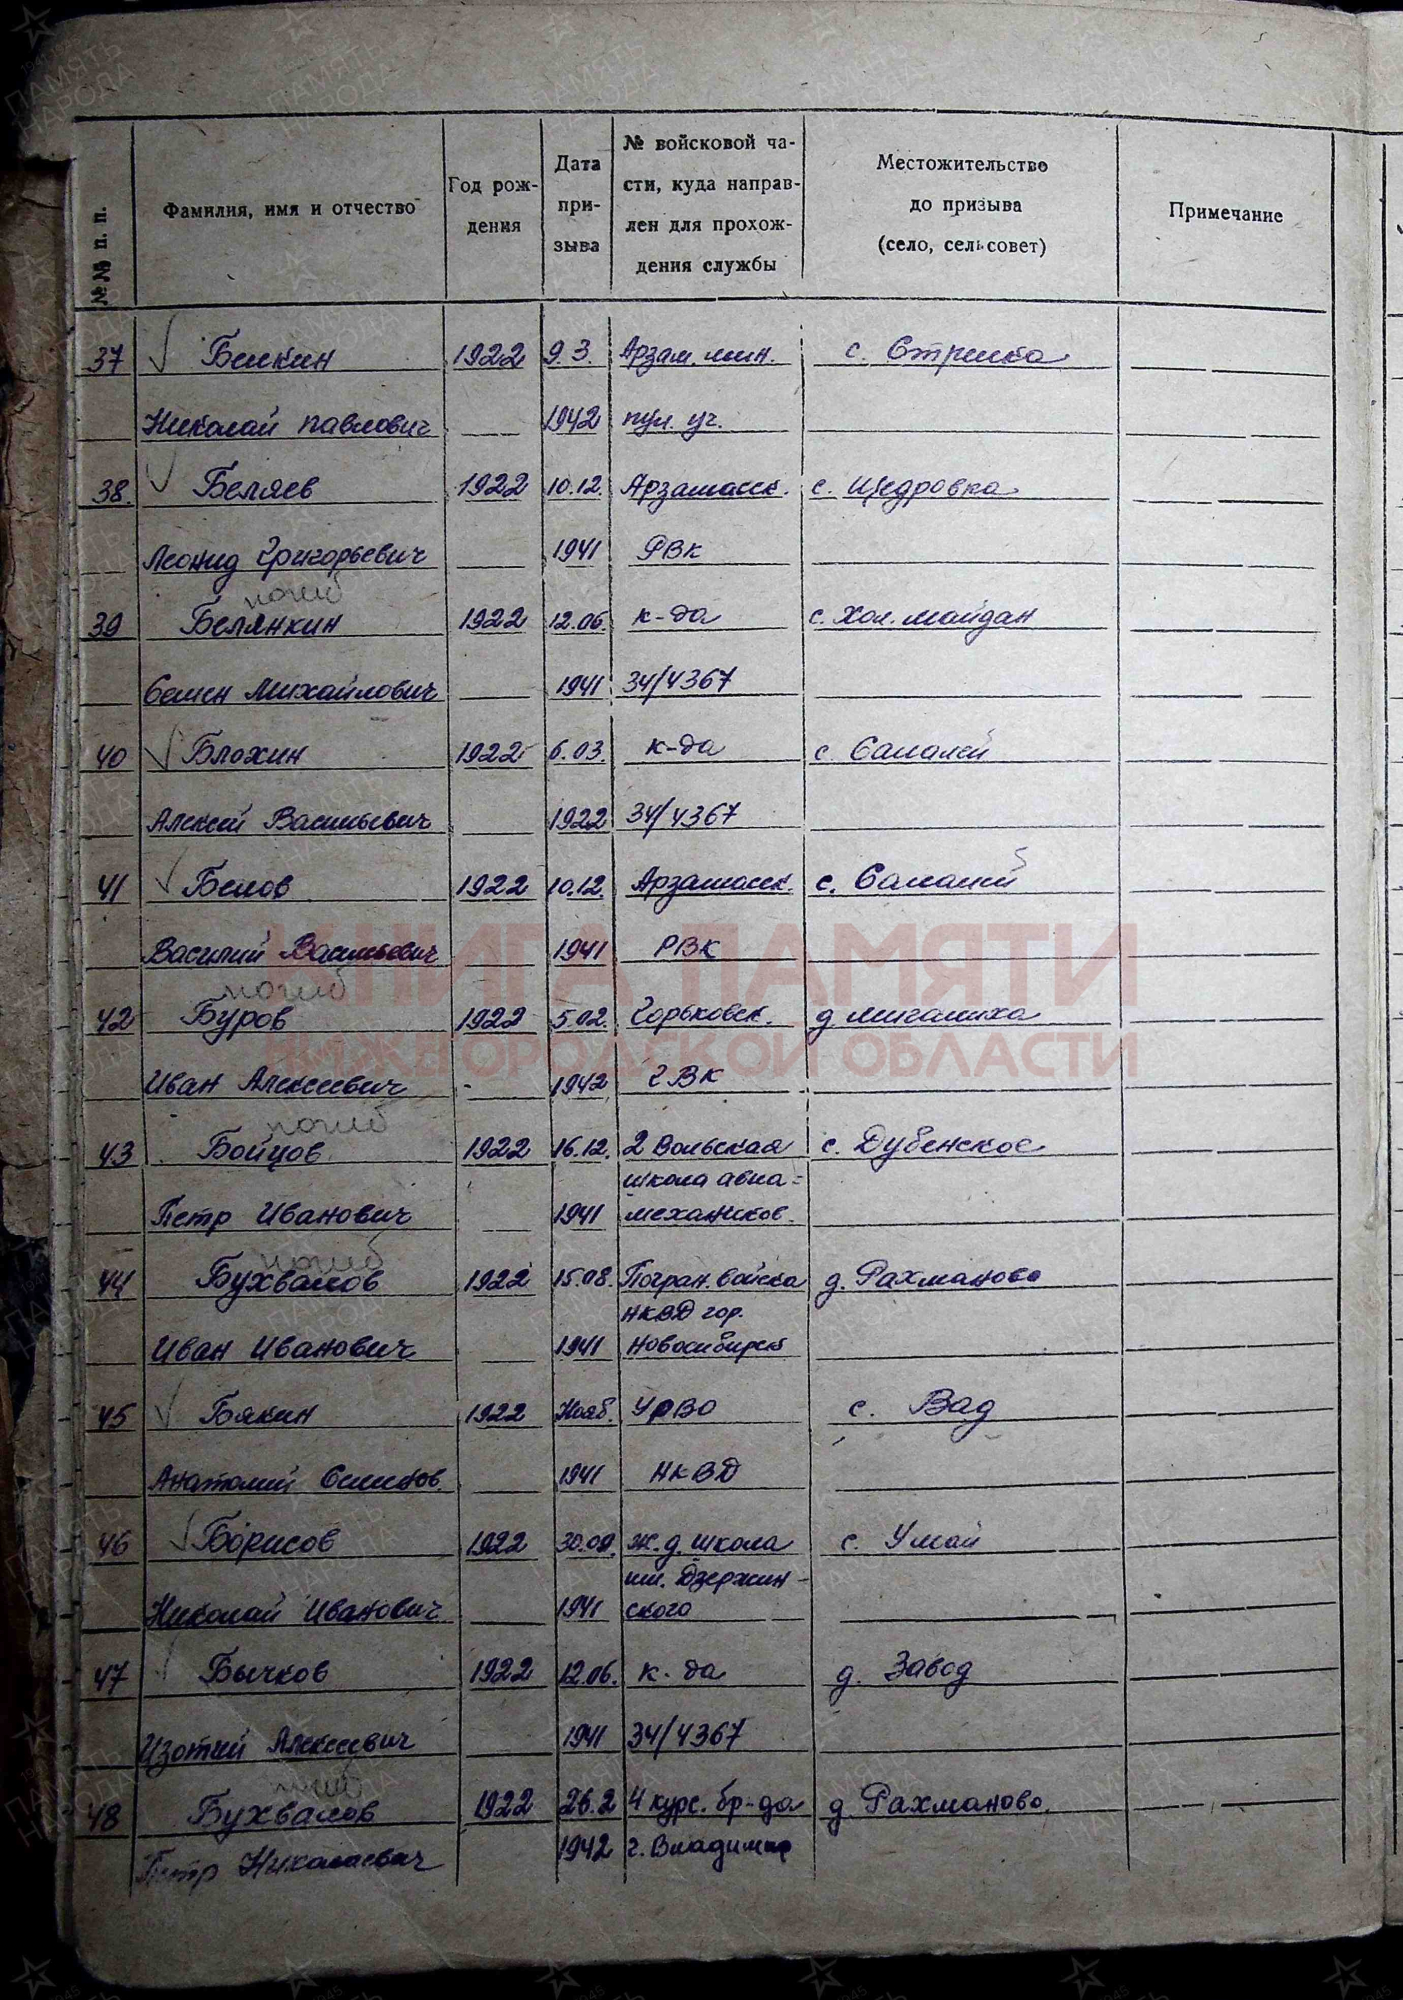 №№ п. п.
Фамилия, имя и отчество
Год рож-
дения
Дата
при-
зыва
№ войсковой ча-
сти, куда направ-
лен для прохож-
дения службы
Местожительство
до призыва
(село, сельсовет)
Примечание
37 Белкин 1922 9.3. Арзам. мин. с. Стрелка
Николай Павлович 1942 пул. уч.
38. Беляев 1922 10.12. Арзамасск. с. Щедровка
Леонид Григорьевич 1941 РВК
погиб
39 Белянкин 1922 12.06 к-да с. Хол. Майдан
Семен Михайлович 1941 34/4367
40 Блохин 1922 6.03. к-да с. Салалей
Алексей Васильевич 1922 34/4367
41 Белов 1922 10.12. Арзамасск. с. Салалей
Василий Васильевич 1941 РВК
КНИГА ПАМЯТИ
погиб
42 Буров 1922 5.02. Горьковск. д. Мигалиха
НИЖЕГОРОДСКОЙ ОБЛАСТИ
Иван Алексеевич 1942 ГВК
погиб
43 Бойцов 1922 16.12. 2 Вольская с. Дубенское
школа авиа=
Петр Иванович 1941 механиков.
погиб
44 Бухвалов 1922 15.08. Погран. войска д. Рахманово
НКВД гор.
Иван Иванович 1941 Новосибирск
45 Бякин 1922 Нояб. УрВО с. Вад
Анатолий Семенов. 1941 НКВД
46 Борисов 1922 30.09. ж.д. школа с. Умай
им. Дзержин-
Николай Иванович 1941 ского
47 Бычков 1922 12.06. к-да д. Завод
Изотий Алексеевич 1941 34/4367
погиб
48 Бухвалов 1922 26.2 4 курс. бр-да д. Рахманово.
Петр Николаевич 1942 г. Владимир
ПАМЯТЬ
НАРОДА